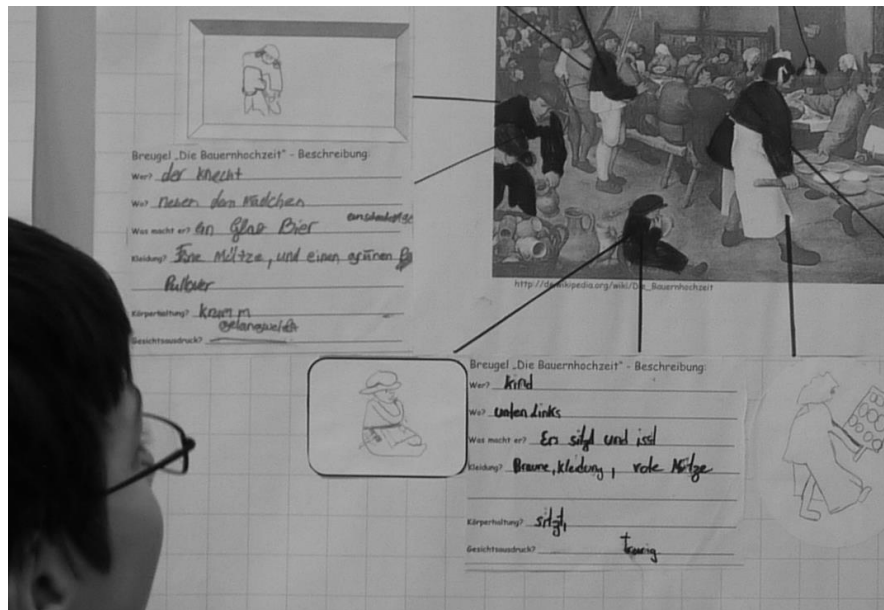 Breugel „Die Bauernhochzeit" - Beschreibung:
Wer? der Knecht
Wo? neben dem Mädchen
Was macht er? ein Glas Bier
Kleidung? Eine Mütze, und einen grünen
Pullover
Körperhaltung? Krumm
gelangweilt
Gesichtsausdruck?
http://de.wikipedia.org/wiki/Die_Bauernhochzeit
Breugel „Die Bauernhochzeit" - Beschreibung:
Wer? Kind
Wo? unten Links
Was macht er? Er sitzt und isst
Kleidung? Braune, Kleidung, rote Mütze
Körperhaltung? sitzt,
Gesichtsausdruck? traurig